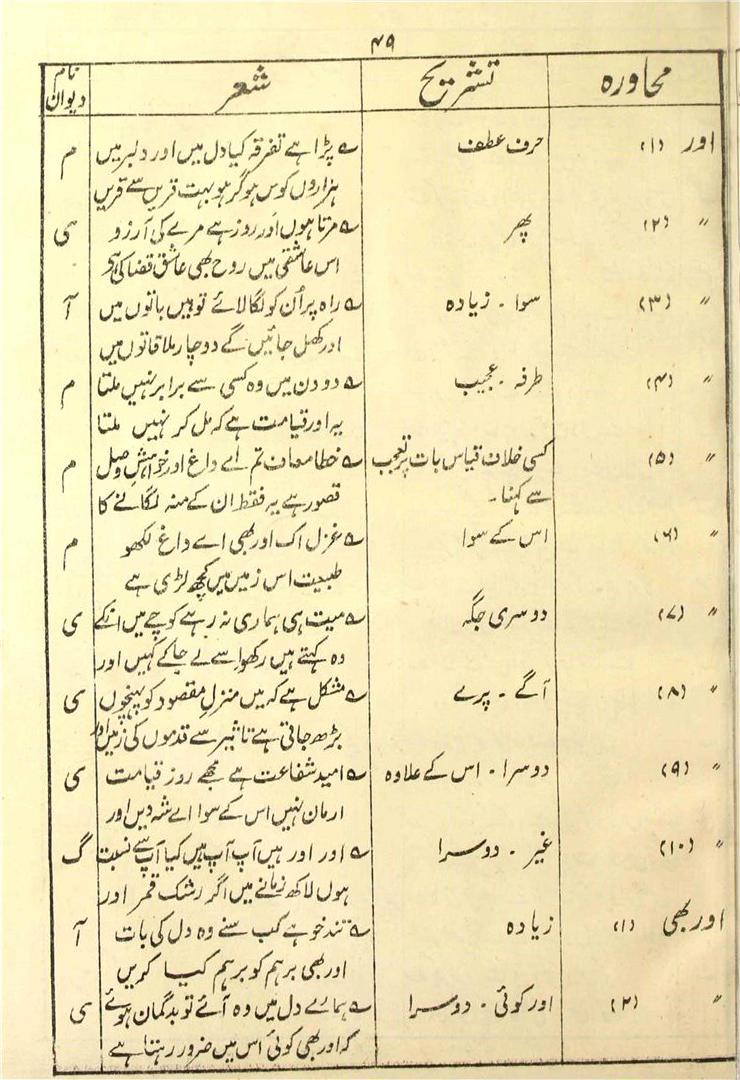 ۴۹
محاورہ تشریح شعر نام دیوان
اور (۱) حرف عطف ؎ پڑا ہے تفرقہ کیا دل میں اور دلبر میں م
ہزاروں کوس ہو گر ہو بہت قریں سے قریں
〃 (۲) پھر ؎ مرتا ہوں اور روز ہے مرنے کی آرزو ی
اس عاشقی میں روح بھی عاشق قضا کی ہے
〃 (۳) سوا ۔ زیادہ ؎ راہ پر اُن کو لگا لائے تو ہیں باتوں میں آ
اور کھل جائیں گے دو چار ملاقاتوں میں
〃 (۴) طرفہ ۔ عجیب ؎ دو دن میں وہ کسی سے برابر نہیں ملتا م
یہ اور قیامت ہے کہ مل کر نہیں ملتا
〃 (۵) کسی خلاف قیاس بات پر تعجب ؎ خطا معاف تم اے داغ اور خواہشِ وصل م
سے کہنا ۔ قصور ہے یہ فقط ان کے منہ لگانے کا
〃 (۶) اس کے سوا ؎ غزل اک اور بھی اے داغ لکھو م
طبیعت اس زمیں میں کچھ لڑی ہے
〃 (۷) دوسری جگہ ؎ میت ہی ہماری نہ رہے کوچے میں انکے ی
وہ کہتے ہیں رکھو اسے لے جا کے کہیں اور
〃 (۸) آگے ۔ پرے ؎ مشکل ہے کہ میں منزلِ مقصود کو پہنچوں ی
بڑھ جاتی ہے تاثیر سے قدموں کی زمیں اور
〃 (۹) دوسرا ۔ اس کے علاوہ ؎ امید شفاعت ہے مجھے روز قیامت ی
ارمان نہیں اس کے سوا اے شہ دیں اور
〃 (۱۰) غیر ۔ دوسرا ؎ اور اور ہیں آپ آپ ہیں کیا آپ سے نسبت گ
ہوں لاکھ زمانے میں اگر رشک قمر اور
اور بھی (۱) زیادہ ؎ تند خو ہے کب سنے وہ دل کی بات آ
اور بھی برہم کو برہم کیا کریں
〃 (۲) اور کوئی ۔ دوسرا ؎ ہمارے دل میں وہ آئے تو بدگمان ہوئے ی
کہ اور بھی کوئی اس میں ضرور رہتا ہے